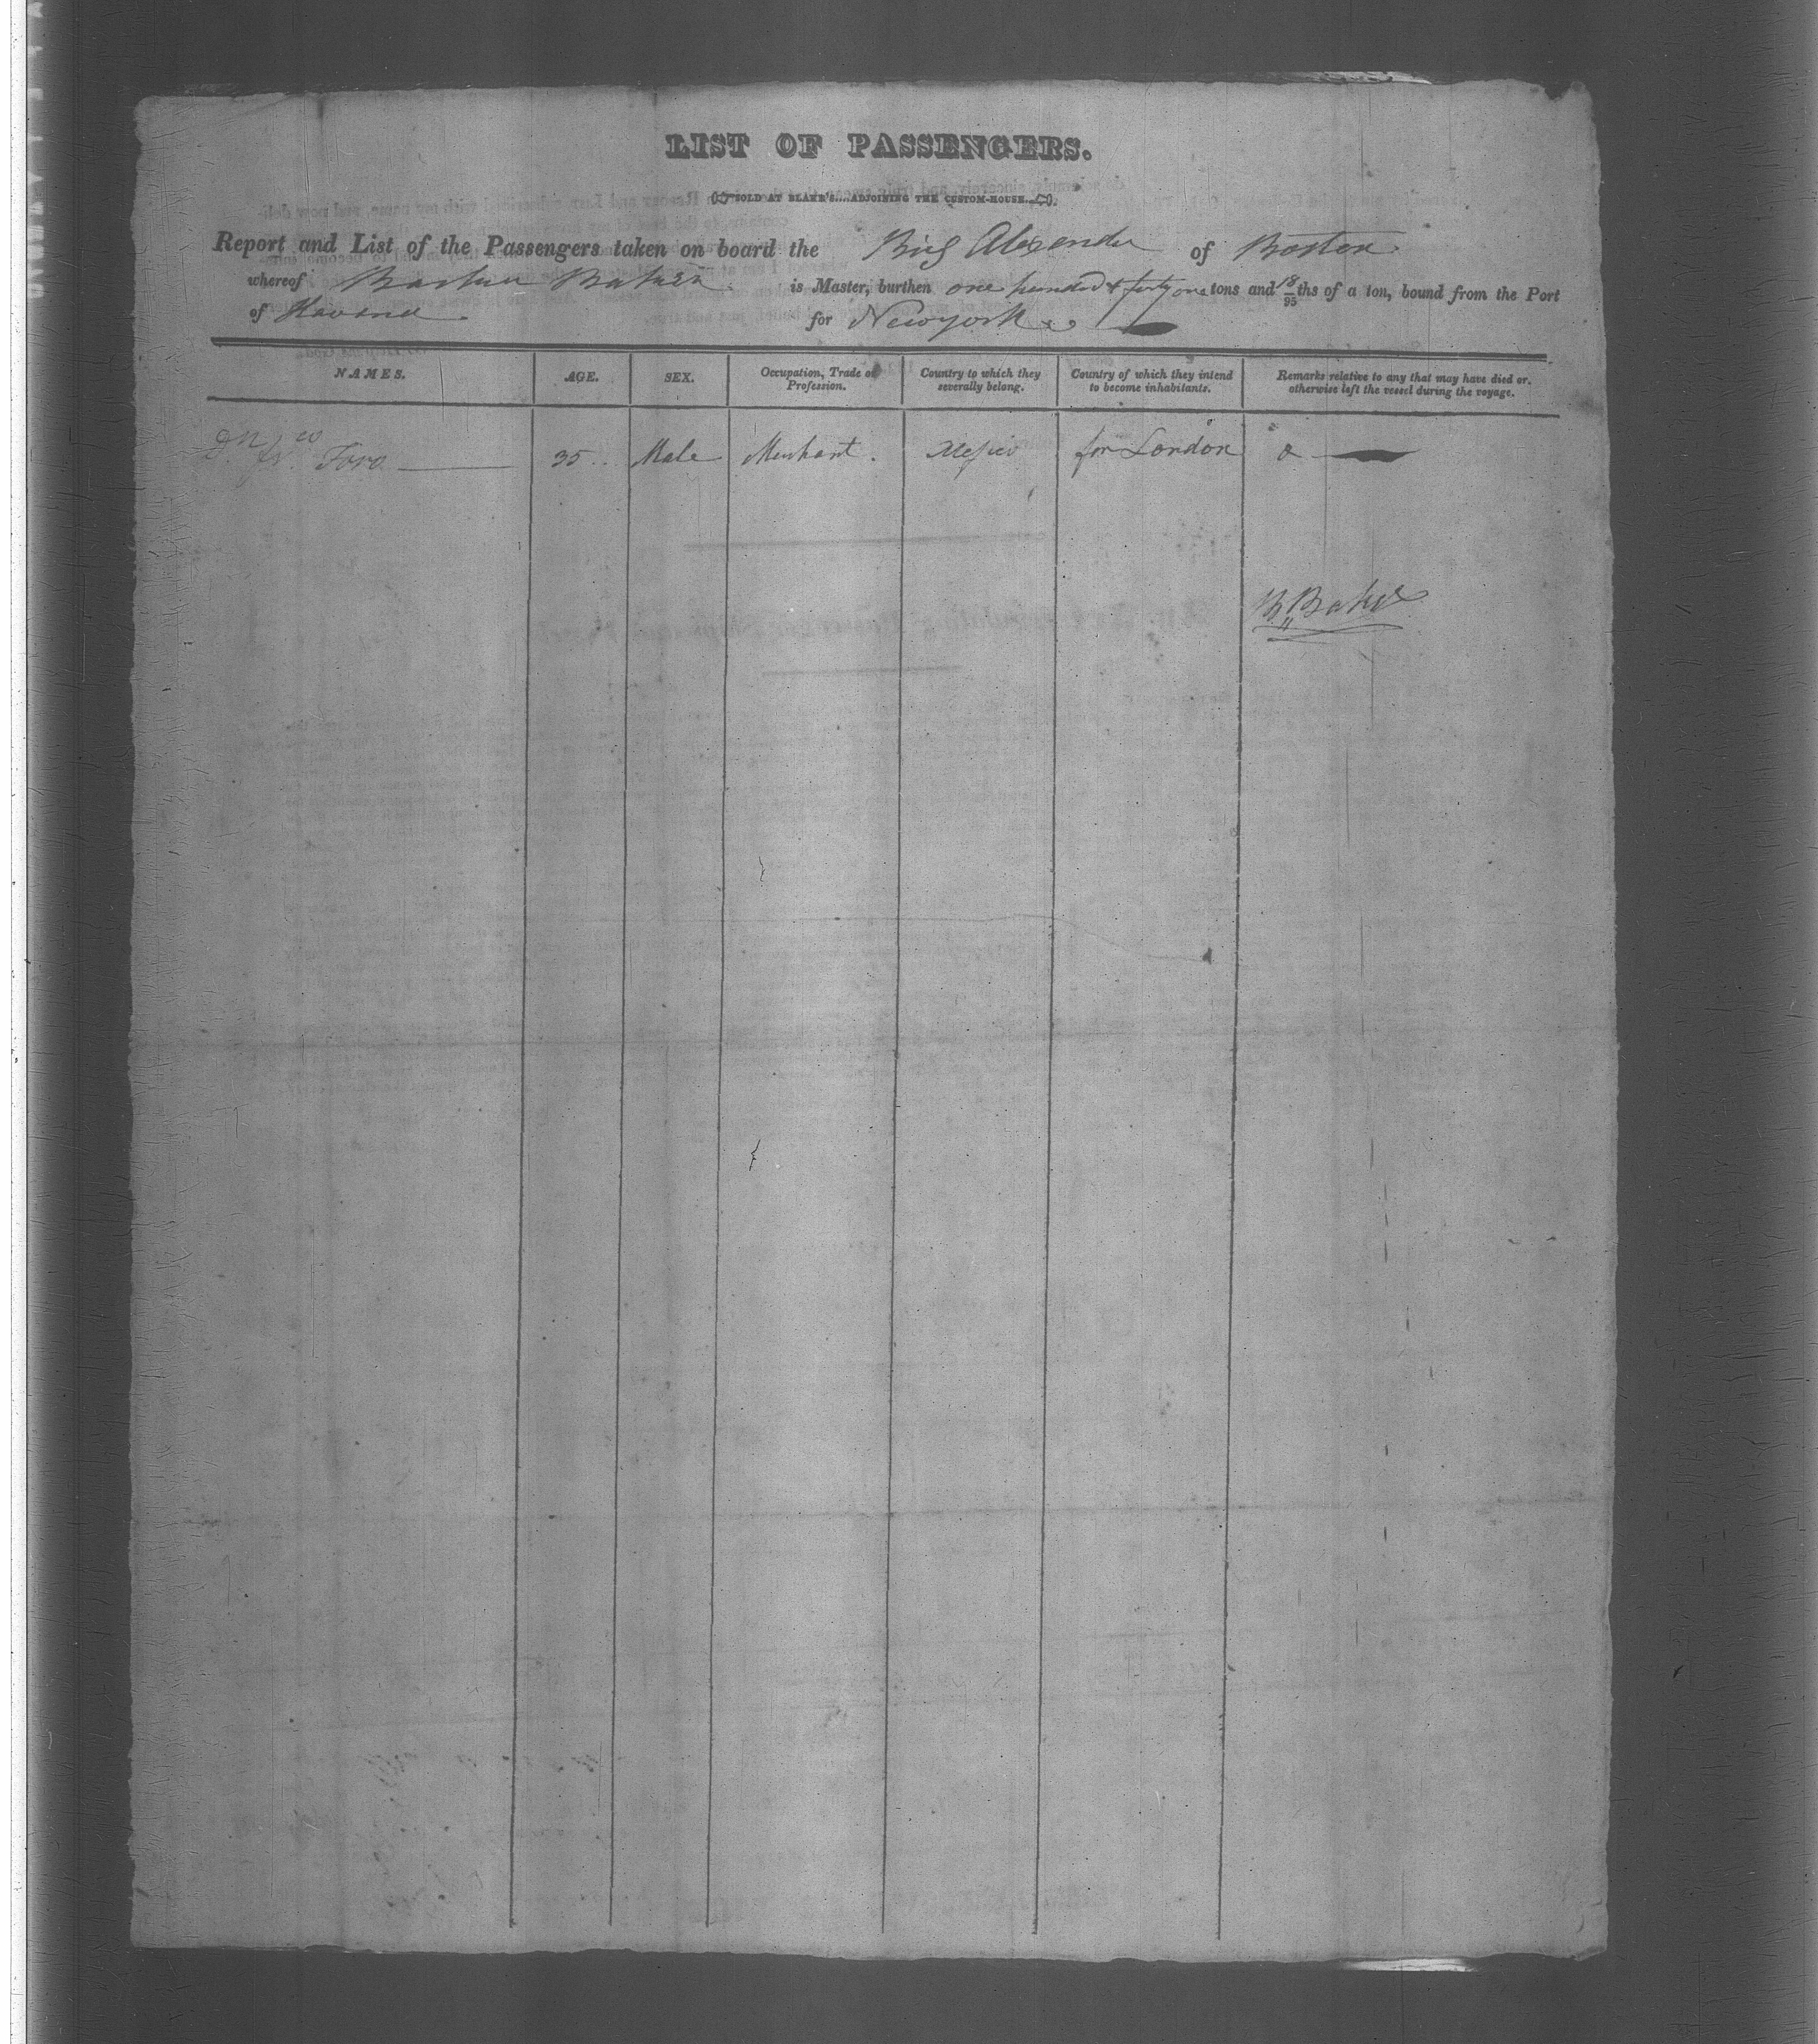 LIST OF PASSENGERS.
SOLD AT BLAKE'S....ADJOINING THE CUSTOM-HOUSE.
Report and List of the Passengers taken on board the Brig Alexander of Boston
whereof Baker is Master, burthen one hundred & forty one tons and 18/95 ths of a ton, bound from the Port
of Havana. for Newyork
NAMES. AGE. SEX. Occupation, Trade or Profession. Country to which they severally belong. Country of which they intend to become inhabitants. Remarks relative to any that may have died or otherwise left the vessel during the voyage.
Dn Fr.co Toro 35 Male Merchant. Mexico for London
B Baker